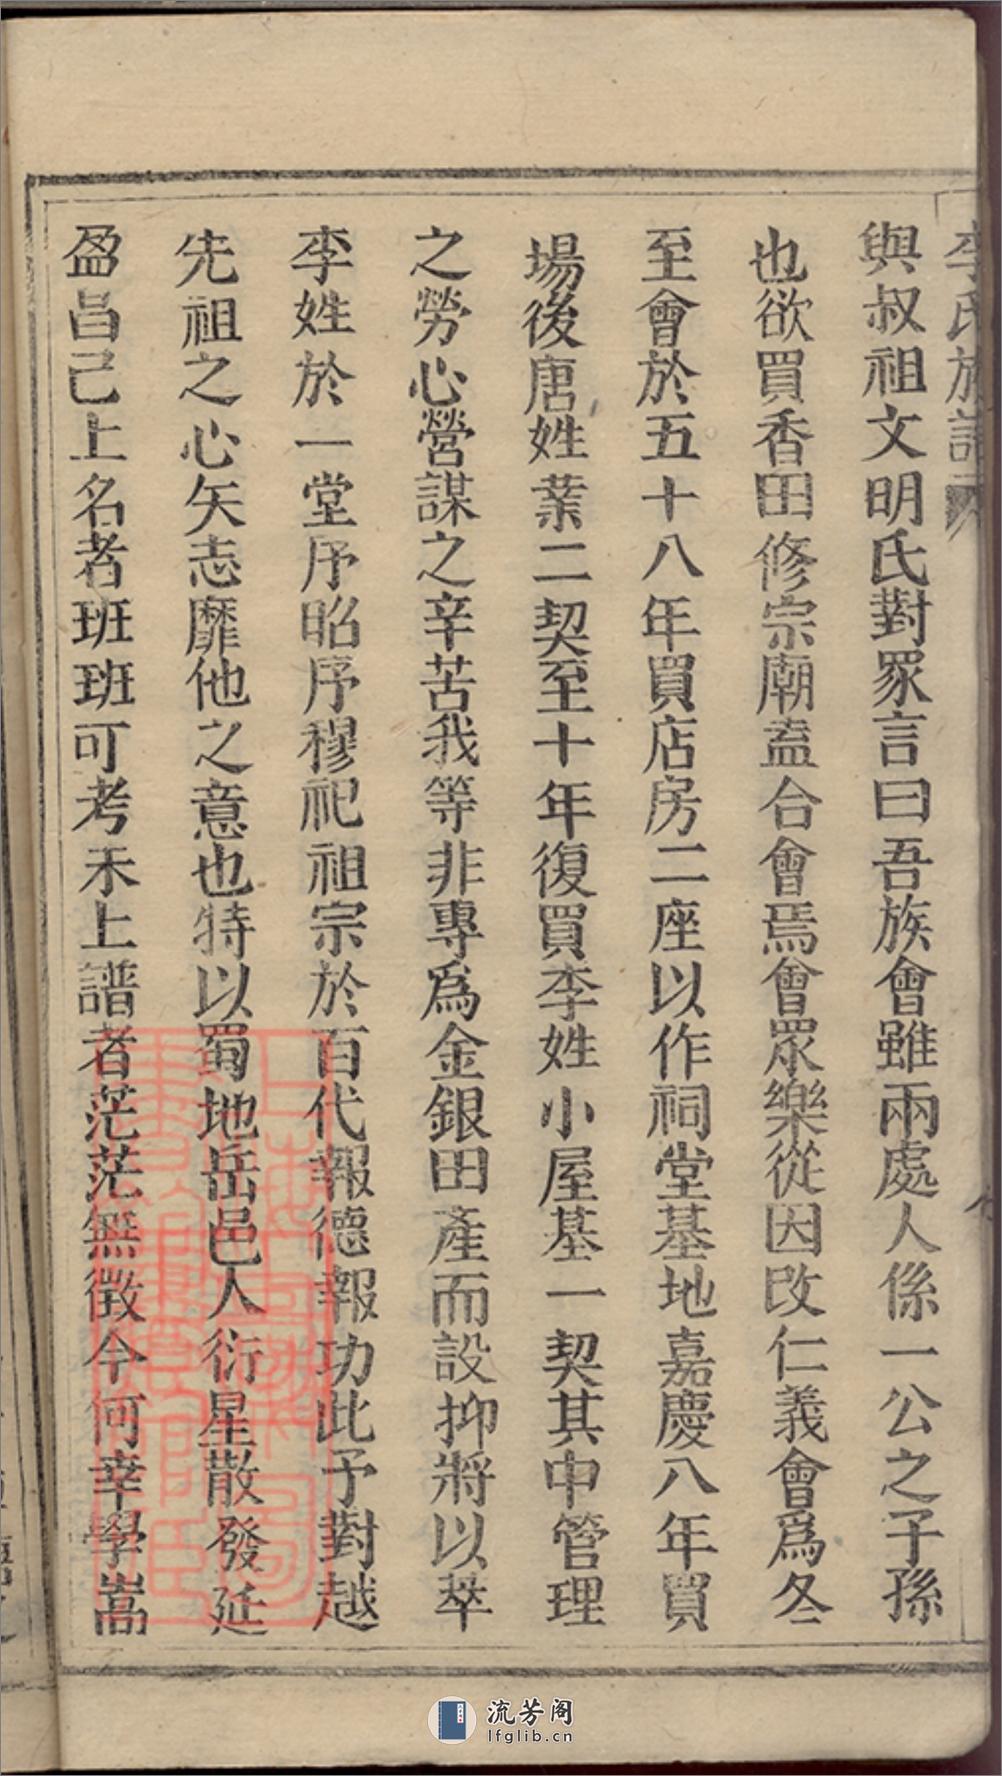 李氏族譜
與叔祖文明氏對眾言曰吾族會雖兩處人係一公之子孫
也欲買香田修宗廟盍合會焉會眾樂從因改仁義會爲冬
至會於五十八年買店房二座以作祠堂基地嘉慶八年買
場後唐姓業二契至十年復買李姓小屋基一契其中管理
之勞心營謀之辛苦我等非專爲金銀田產而設抑將以萃
李姓於一堂序昭序穆祀祖宗於百代報德報功此予對越
先祖之心矢志靡他之意也特以蜀地岳邑人衍星散發延
盈昌己上名者班班可考未上譜者茫茫無徵今何幸學嵩
流芳阁
lfglib.cn